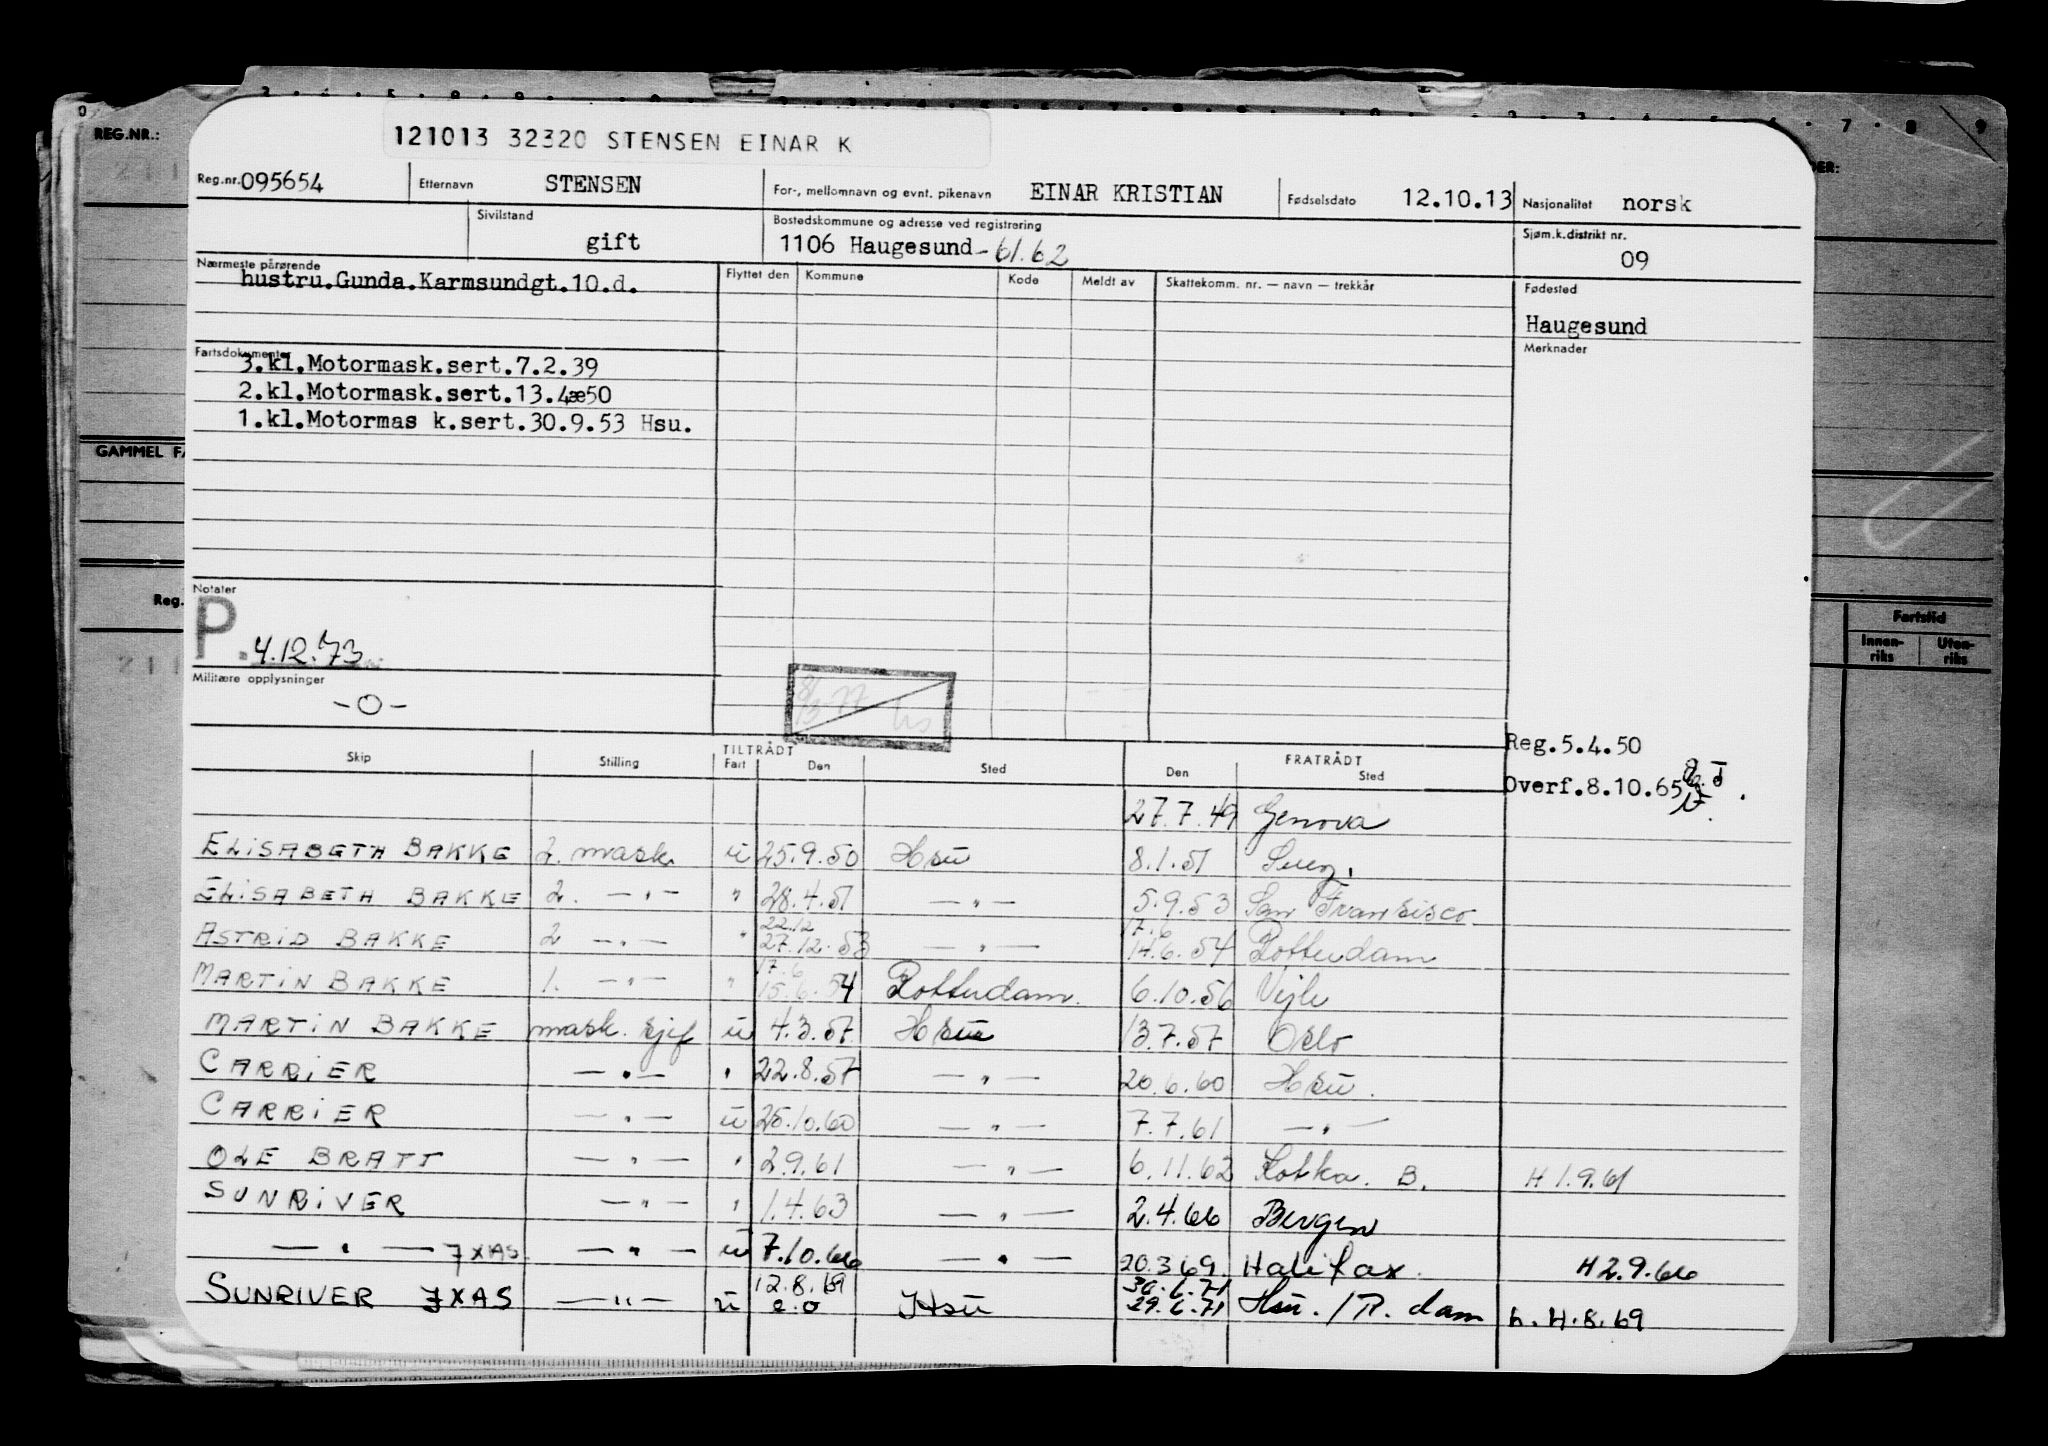 REG.NR.:
121013 32320 STENSEN EINAR K
Reg.nr. 095654 Etternavn STENSEN For-, mellomnavn og evnt. pikenavn EINAR KRISTIAN Fødselsdato 12.10.13 Nasjonalitet norsk
Sivilstand gift Bostedskommune og adresse ved registrering 1106 Haugesund - 61.62 Sjøm.k.distrikt nr. 09
Nærmeste pårørende Flyttet den Kommune Kode Meldt av Skattekomm. nr. — navn — trekkår Fødested
hustru.Gunda.Karmsundgt.10.d.
Haugesund
Fartsdokumenter Merknader
3.kl.Motormask.sert.7.2.39
2.kl.Motormask.sert.13.4æ50
1.kl.Motormas k.sert.30.9.53 Hsu.
GAMMEL FA
Notater
Reg.
P. 4.12.73
Fartstid
Innen-riks Uten-riks
Militære opplysninger
-O-
8/3 77
Reg.5.4.50
Overf.8.10.65
TILTRÅDT FRATRÅDT
Skip Stilling Fart Den Sted Den Sted
27.7.49 Genova
ELISABETH BAKKE 2. mask. u 25.9.50 Hsu 8.1.51 Suez.
ELISABETH BAKKE 2. —"— " 28.4.51 —"— 5.9.53 San Fransisco
22.12 17.6
ASTRID BAKKE 2 —"— " 27.12.53 —"— 14.6.54 Rotterdam
17.6
MARTIN BAKKE 1. —"— " 15.6.54 Rotterdam. 6.10.56 Vejle
MARTIN BAKKE mask. sjef u 4.3.57 Hsu 13.7.57 Oslo
CARRIER —"— " 22.8.57 —"— 20.6.60 Hsu.
CARRIER —"— u 25.10.60 —"— 7.7.61 —"—
OLE BRATT —"— " 2.9.61 —"— 6.11.62 Kotka. B. H 1.9.61
SUNRIVER —"— " 1.4.63 —"— 2.4.66 Bergen
—"— JXAS. —"— u 7.10.66 —"— 20.3.69. Halifax. H 2.9.66
12.8.69 30.6.71
SUNRIVER JXAS —"— u e.o Hsu 29.6.71 Hsu. / R. dam h. H.8.69